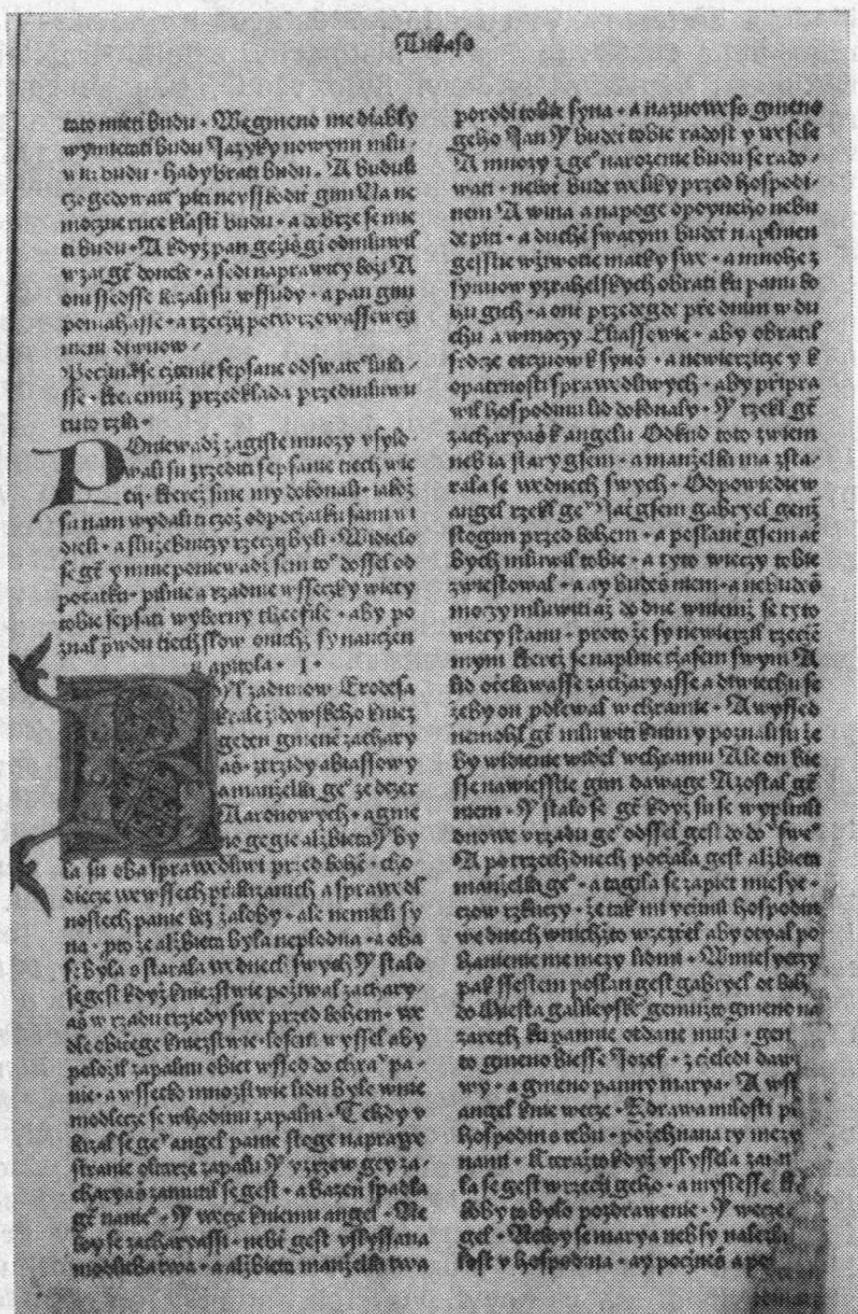 Lukass
tato mieti budu • We gmeno me diably
wymietati budu Jazyky nowymi mlu⸗
witi budu • hady brati budu • A buduli
czo gedowate° piti neysskodit gim Na ne
moczne rucze klasti budu • a dobrze se mie
ti budu • A kdyz pan gezijs gi odmluwil
wzat gest do nebe • a sedi na prawiczy bozi A
oni ssedsse kazali su wssudy • a pan gim
pomahasse • a rzeczy potwrzowasse
niem diwuow ⸗
Poczina se cztenie sepsane od swate° luka⸗
sse • kteremuz przedklada przedmluwu
tuto rzka •
POniewadz zagiste mnozy vsylo⸗
wali su zrzediti sepsanie tiech wie
czij • kterez sme my dokonali • iakoz
su nam wydali ti czoz od poczatku sami wi
dieli • a sluzebniczy rzeczy byli • Widielo
se gest y mnie poniewadz sem to° dossel od
poczatku • pilnie a rzadnie wsseczky wieczy
tobie sepsati wyborny theofile • aby po
znal prawdu tiech slow onichz sy nauczen
Kapitola • I •
BYl za dnuow Erodesa
krale zidowskeho kniez
geden gmene zachary
as • z trzidy abiassowy
a manzelka ge° ze dczer
Aaronowych • a gme
no gegie alzbieta Y by
la su oba sprawedliwi przed bohem • cho
diecze we wssech przikazanich a sprawedl
nostech panie bez zaloby • ale nemieli sy
na • proto ze alzbieta byla neplodna • a oba
se byla sstarala we dnech swych Y stalo
se gest kdyz kniezstwie poziwal zachary⸗
as w rzadu trziedy swe przed bohem • we
dle obiczege kniezstwie • losem wyssel aby
polozil zapalni obiet wssed do chra° pa⸗
nie • a wssecko mnozstwie lidu byle wnie
modlecze se w hodinu zapalu • Tehdy v
kazal se ge° angel panie stoge na prawe
stranie oltarze zapalu Y vzrzew gey za⸗
charyas zarmutil se gest • a bazen spadla
gest nan • Y wecze k niemu angel • Ne
boy se zacharyassi • nebt gest vslyssana
modlitba twa • a alzbieta manzelka twa
porodi tobie syna • a nazowess gmeno
geho Jan Y budet tobie radost y wesele
A mnozy z ge° narozenie budu se rado⸗
wati • nebot bude weliky przed hospodi⸗
nem A wina a napoge opoyneho nebu
de piti • a duchem swatym budet naplnien
gesstie w ziwotie matky swe • a mnohe z
synuow yzrahelskych obrati ku panu bo
hu gich • a ont przedegde przed nim w du
chu a w moczy Eliassowie • aby obratil
srdcze otczuow k synom • a newierzicze y k
opatrnosti sprawedliwych • aby pripra
wil hospodinu lid dokonaly • Y rzekl gest
zacharyas k angelu Odkud toto zwiem
neb ia stary gsem • a manzelka ma zsta⸗
rala se we dnech swych • Odpowiediew
angel rzekl ge° Jat gsem gabryel genz
stogim przed bohem • a poslant gsem at
bych mluwil tobie • a tyto wieczy tobie
zwiestowal • a ay budes niem • a nebudes
moczy mluwiti az do dne w niemz se tyto
wieczy stanu • proto ze sy newierzil rzeczem
mym kterez se naplnie czasem swym A
lid oczekiwasse zacharyasse a diwiechu se
zeby on prodlewal w chramie • A wyssed
nemohl gest mluwiti k nim y poznali su ze
by widienie widiel w chramu Ale on bie
sse nawiesstie gim dawage A zostal gest
niem • Y stalo se gest kdyz su se wyplnili
dnowe vrzadu ge° odssel gest do do° swe°
A po trzech dnech poczala gest alzbieta
manzelka ge° • a tagila se za piet miesye⸗
czow rzkuczy • ze tak mi vczinil hospodin
we dnech w nichzto wzezrzel aby otyal po
hanienie me mezy lidmi • W miesyeczy
pak ssestem poslan gest gabryel ot boha
do miesta galileyske° gemuzto gmeno na
zareth ku pannie oddane muzi • gen
to gmeno biesse Jozef • z czeledi dawi
wy • a gmeno panny marya • A wssed
angel k nie wecze • Zdrawa milosti pl
hospodin s tebu • pozehnana ty mezy
nami • Kterazto kdyz vslyssela zarm
la se gest w rzeczi geho • a myslesse
kby to bylo pozdrawenie • Y wecze
gel • Neboy se marya neb sy nalezla
lost v hospodina • ay poczness a po